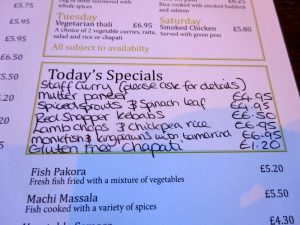 £5.75
whole spices
£5.25
Rice cooked with smoked haddock
and salmon
£5.95
Tuesday
Vegetarian thali £6.95
A choice of 2 vegetable curries, raita,
salad and rice or chapati
All subject to availabilty
Saturday
Smoked Chicken £5.80
Served with green peas
£4.95
£5.50
Today's Specials
Staff Curry (please ask for details)
mutter paneer £4.95
Spiced sprouts & Spinach leaf £4.95
Red Snapper kebabs £6.50
Lamb chops & chickpea rice £6.95
monkfish & kingprawns with tamarind £6.95
Gluten Free Chapati £1.20
Fish Pakora £5.20
Fresh fish fried with a mixture of vegetables
Machi Massala £5.50
Fish cooked with a variety of spices
£4.30